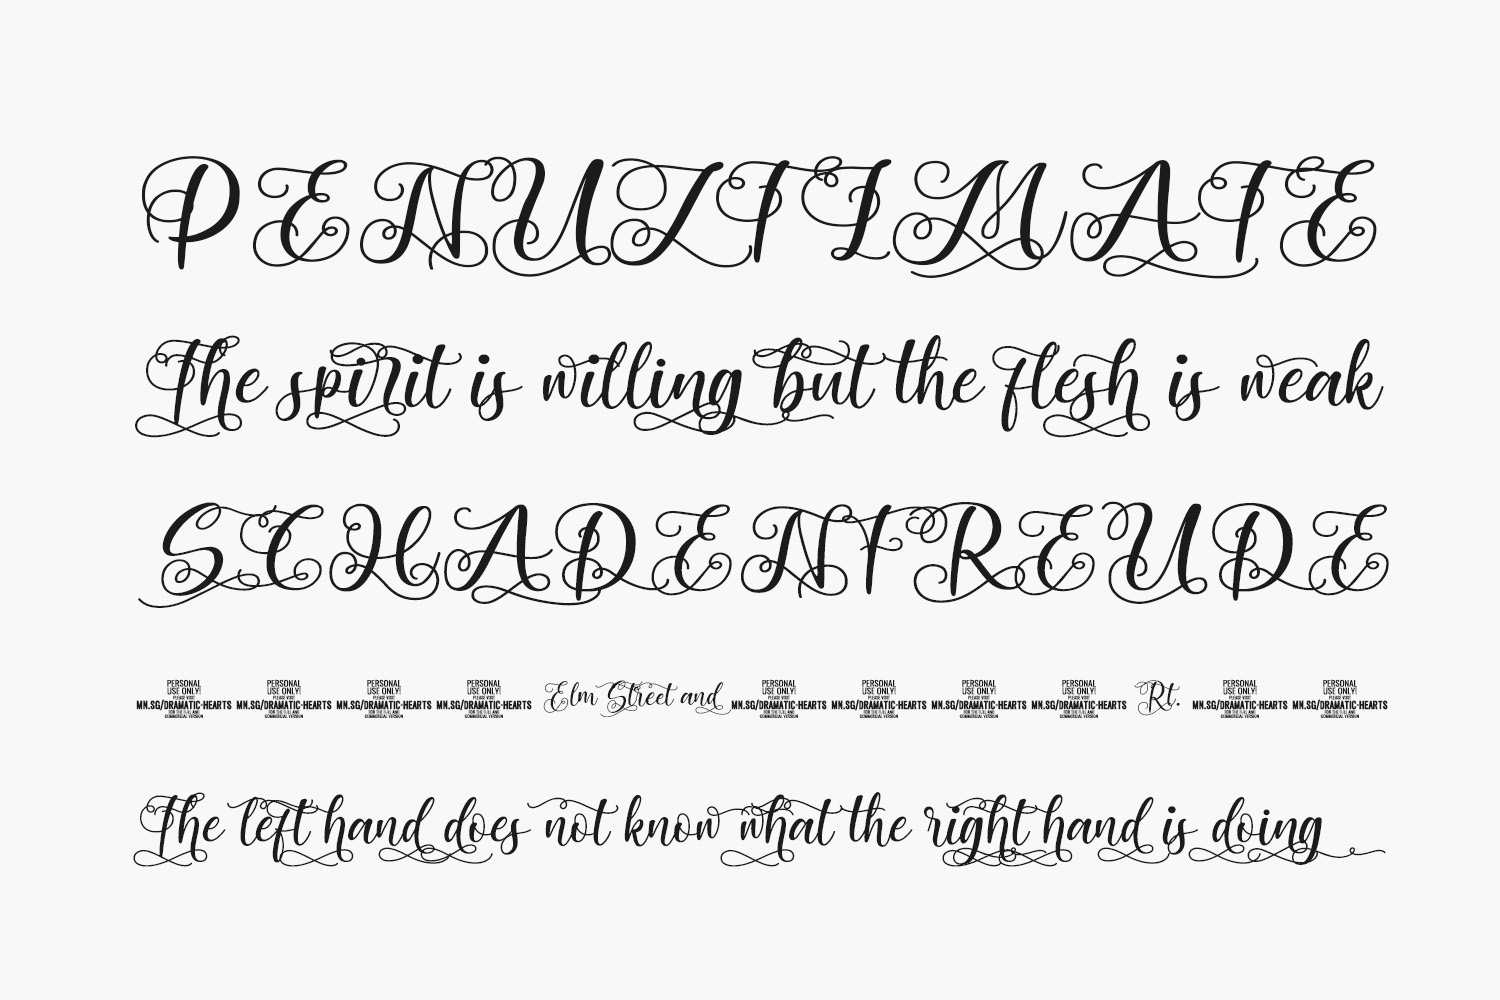 PENULTIMATE
The spirit is willing but the flesh is weak
SCHADENFREUDE
PERSONAL USE ONLY! PLEASE VISIT MN.SG/DRAMATIC-HEARTS FOR THE FULL AND COMMERCIAL VERSION PERSONAL USE ONLY! PLEASE VISIT MN.SG/DRAMATIC-HEARTS FOR THE FULL AND COMMERCIAL VERSION PERSONAL USE ONLY! PLEASE VISIT MN.SG/DRAMATIC-HEARTS FOR THE FULL AND COMMERCIAL VERSION PERSONAL USE ONLY! PLEASE VISIT MN.SG/DRAMATIC-HEARTS FOR THE FULL AND COMMERCIAL VERSION Elm Street and PERSONAL USE ONLY! PLEASE VISIT MN.SG/DRAMATIC-HEARTS FOR THE FULL AND COMMERCIAL VERSION PERSONAL USE ONLY! PLEASE VISIT MN.SG/DRAMATIC-HEARTS FOR THE FULL AND COMMERCIAL VERSION PERSONAL USE ONLY! PLEASE VISIT MN.SG/DRAMATIC-HEARTS FOR THE FULL AND COMMERCIAL VERSION PERSONAL USE ONLY! PLEASE VISIT MN.SG/DRAMATIC-HEARTS FOR THE FULL AND COMMERCIAL VERSION Rt. PERSONAL USE ONLY! PLEASE VISIT MN.SG/DRAMATIC-HEARTS FOR THE FULL AND COMMERCIAL VERSION PERSONAL USE ONLY! PLEASE VISIT MN.SG/DRAMATIC-HEARTS FOR THE FULL AND COMMERCIAL VERSION
The left hand does not know what the right hand is doing